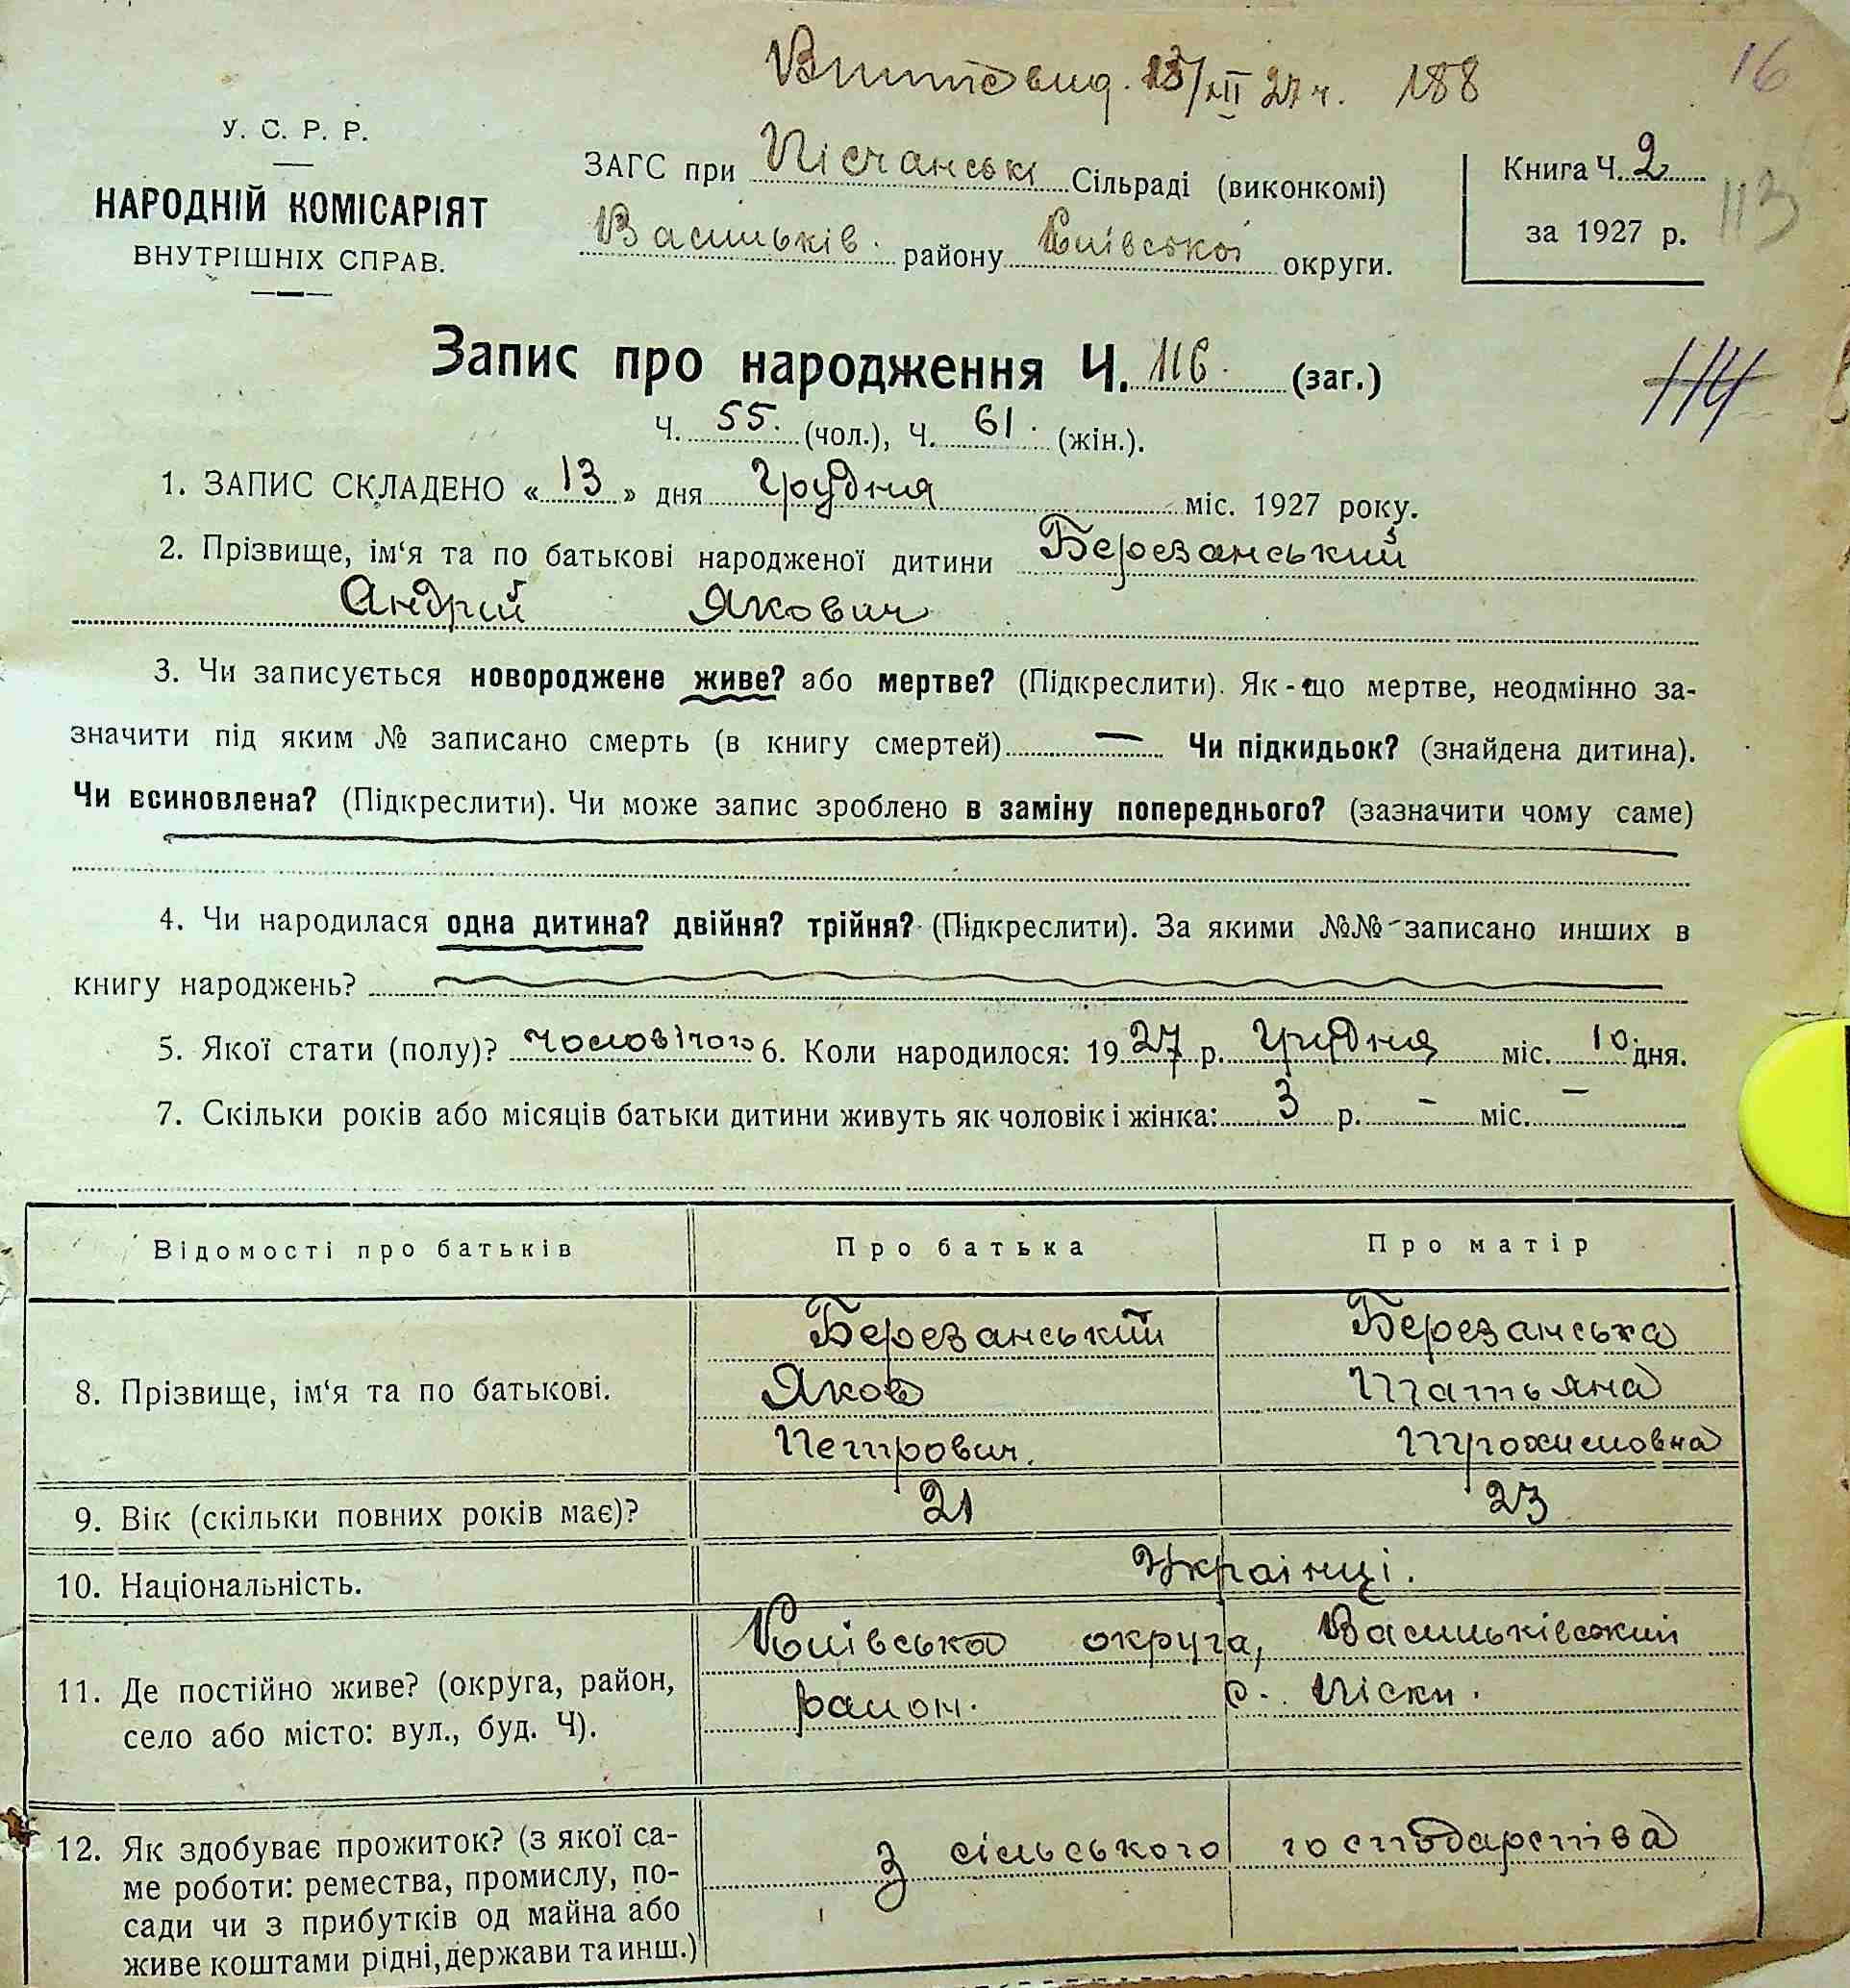 Витяг вид. 23/XII 27 ч. 188
16
У. С. Р. Р.
НАРОДНІЙ КОМІСАРІЯТ
ВНУТРІШНІХ СПРАВ.
ЗАГС при Пісчанські Сільраді (виконкомі)
Васильків. району Київської округи.
Книга Ч. 2
за 1927 р.
113
Запис про народження Ч. 116. (заг.)
114
Ч. 55. (чол.), Ч. 61. (жін.).
1. ЗАПИС СКЛАДЕНО «13» дня Грудня міс. 1927 року.
2. Прізвище, ім‘я та по батькові народженої дитини Березанський
Андрій Якович
3. Чи записується новороджене живе? або мертве? (Підкреслити). Як-що мертве, неодмінно за-
значити під яким № записано смерть (в книгу смертей) — Чи підкидьок? (знайдена дитина).
Чи всиновлена? (Підкреслити). Чи може запис зроблено в заміну попереднього? (зазначити чому саме)
4. Чи народилася одна дитина? двійня? трійня? (Підкреслити). За якими №№ записано инших в
книгу народжень?
5. Якої стати (полу)? чоловічого 6. Коли народилося: 1927 р. Грудня міс. 10 дня.
7. Скільки років або місяців батьки дитини живуть як чоловік і жінка: 3 р. - міс. -
Відомості про батьків Про батька Про матір
8. Прізвище, ім‘я та по батькові.
Березанський Березанська
Яков Татьяна
Петрович. Трохимовна
9. Вік (скільки повних років має)? 21 23
10. Національність. Українці.
11. Де постійно живе? (округа, район,
село або місто: вул., буд. Ч).
Київська округа, Васильківський
район. с. Піски.
12. Як здобуває прожиток? (з якої са-
ме роботи: ремества, промислу, по-
сади чи з прибутків од майна або
живе коштами рідні, держави та инш.)
З сільського господарства